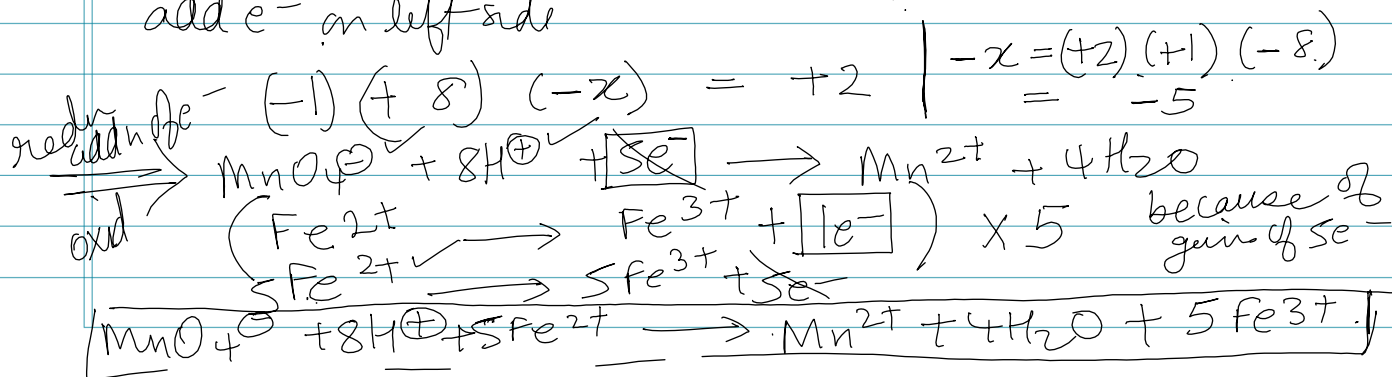 add e⁻ on left side
(-1) (+ 8) (-x) = +2 | -x = (+2) (+1) (-8)
= -5
redn addn of e⁻
MnO₄⊖ + 8H⊕ + 5e⁻ → Mn²⁺ + 4H₂O
oxid (Fe²⁺ → Fe³⁺ + 1e⁻) × 5 because of gain of 5e⁻
5Fe²⁺ → 5Fe³⁺ + 5e⁻
MnO₄⊖ + 8H⊕ + 5Fe²⁺ → Mn²⁺ + 4H₂O + 5Fe3+